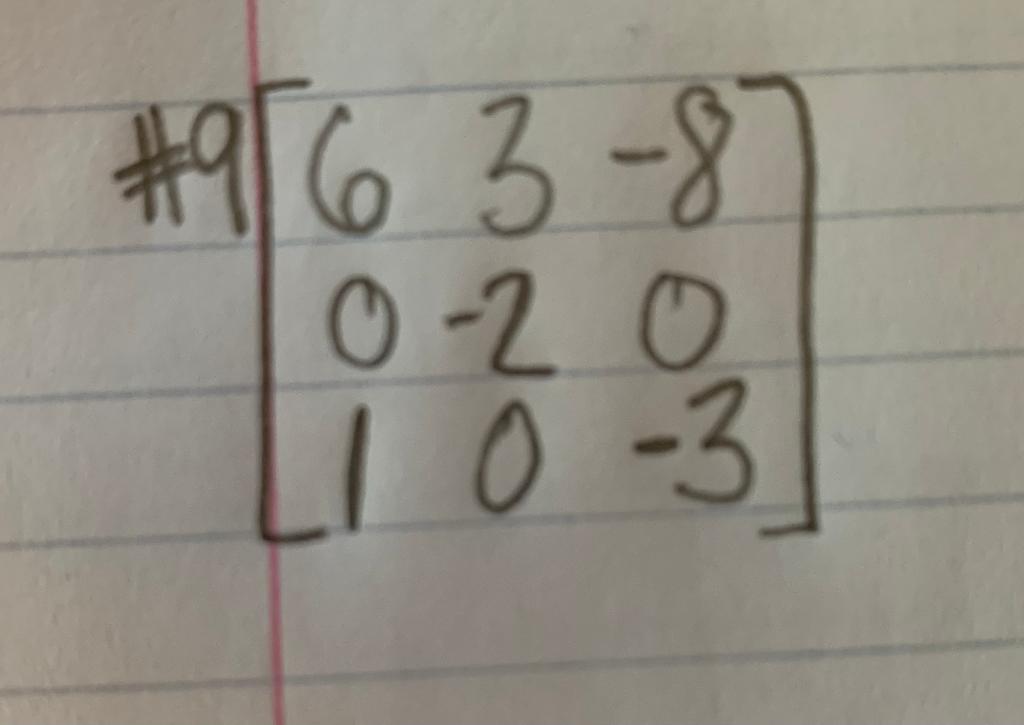 #9 [6 3 -8
0 -2 0
1 0 -3]